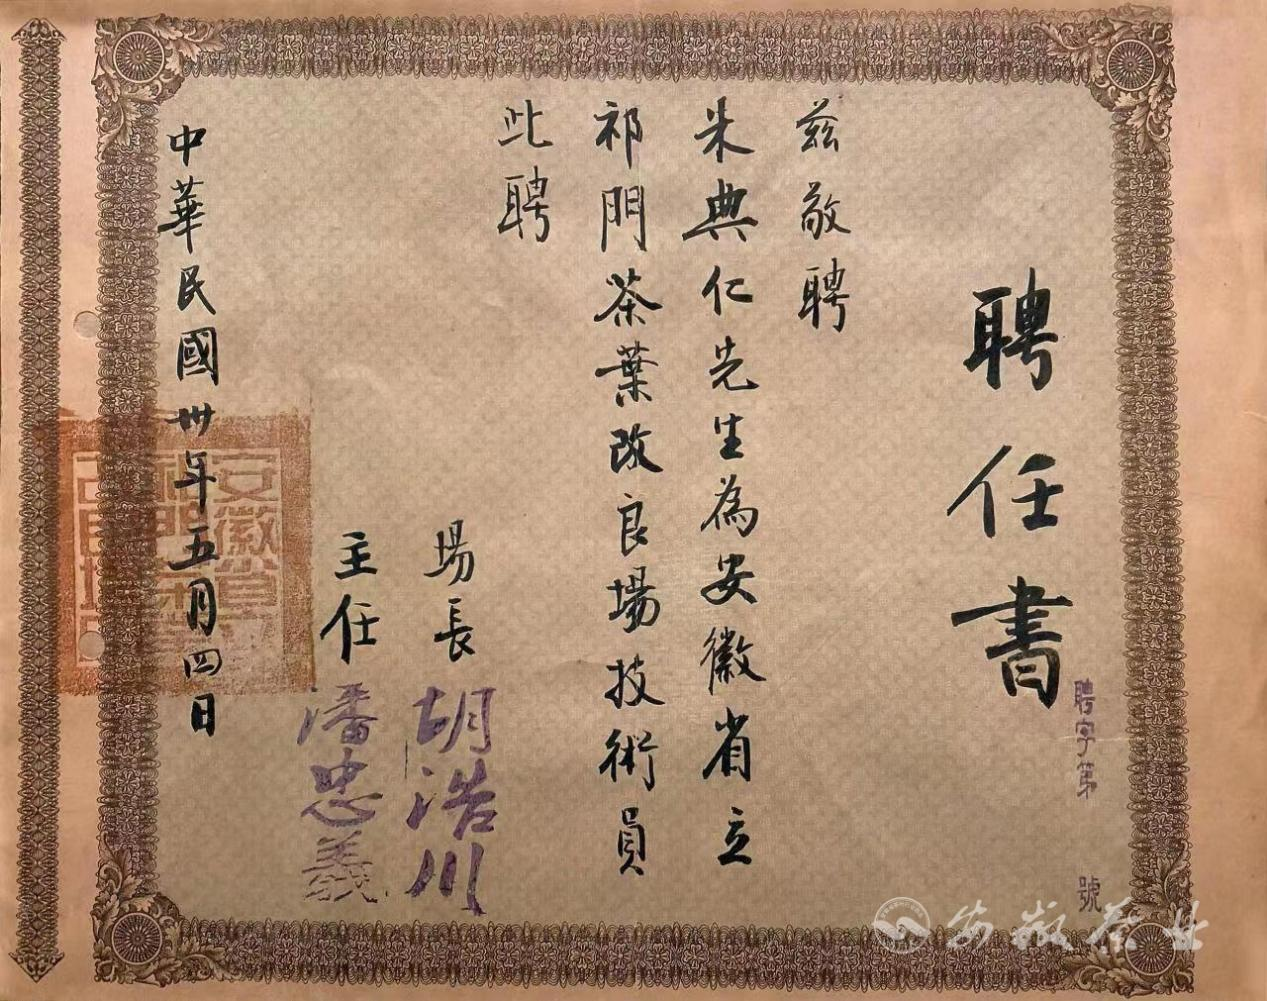 聘任書
聘字第 號
茲敬聘
朱典仁先生為安徽省立
祁門茶葉改良場技術員
此聘
場長 胡浩川
主任 潘忠義
中華民國卅年五月四日
安徽茶业